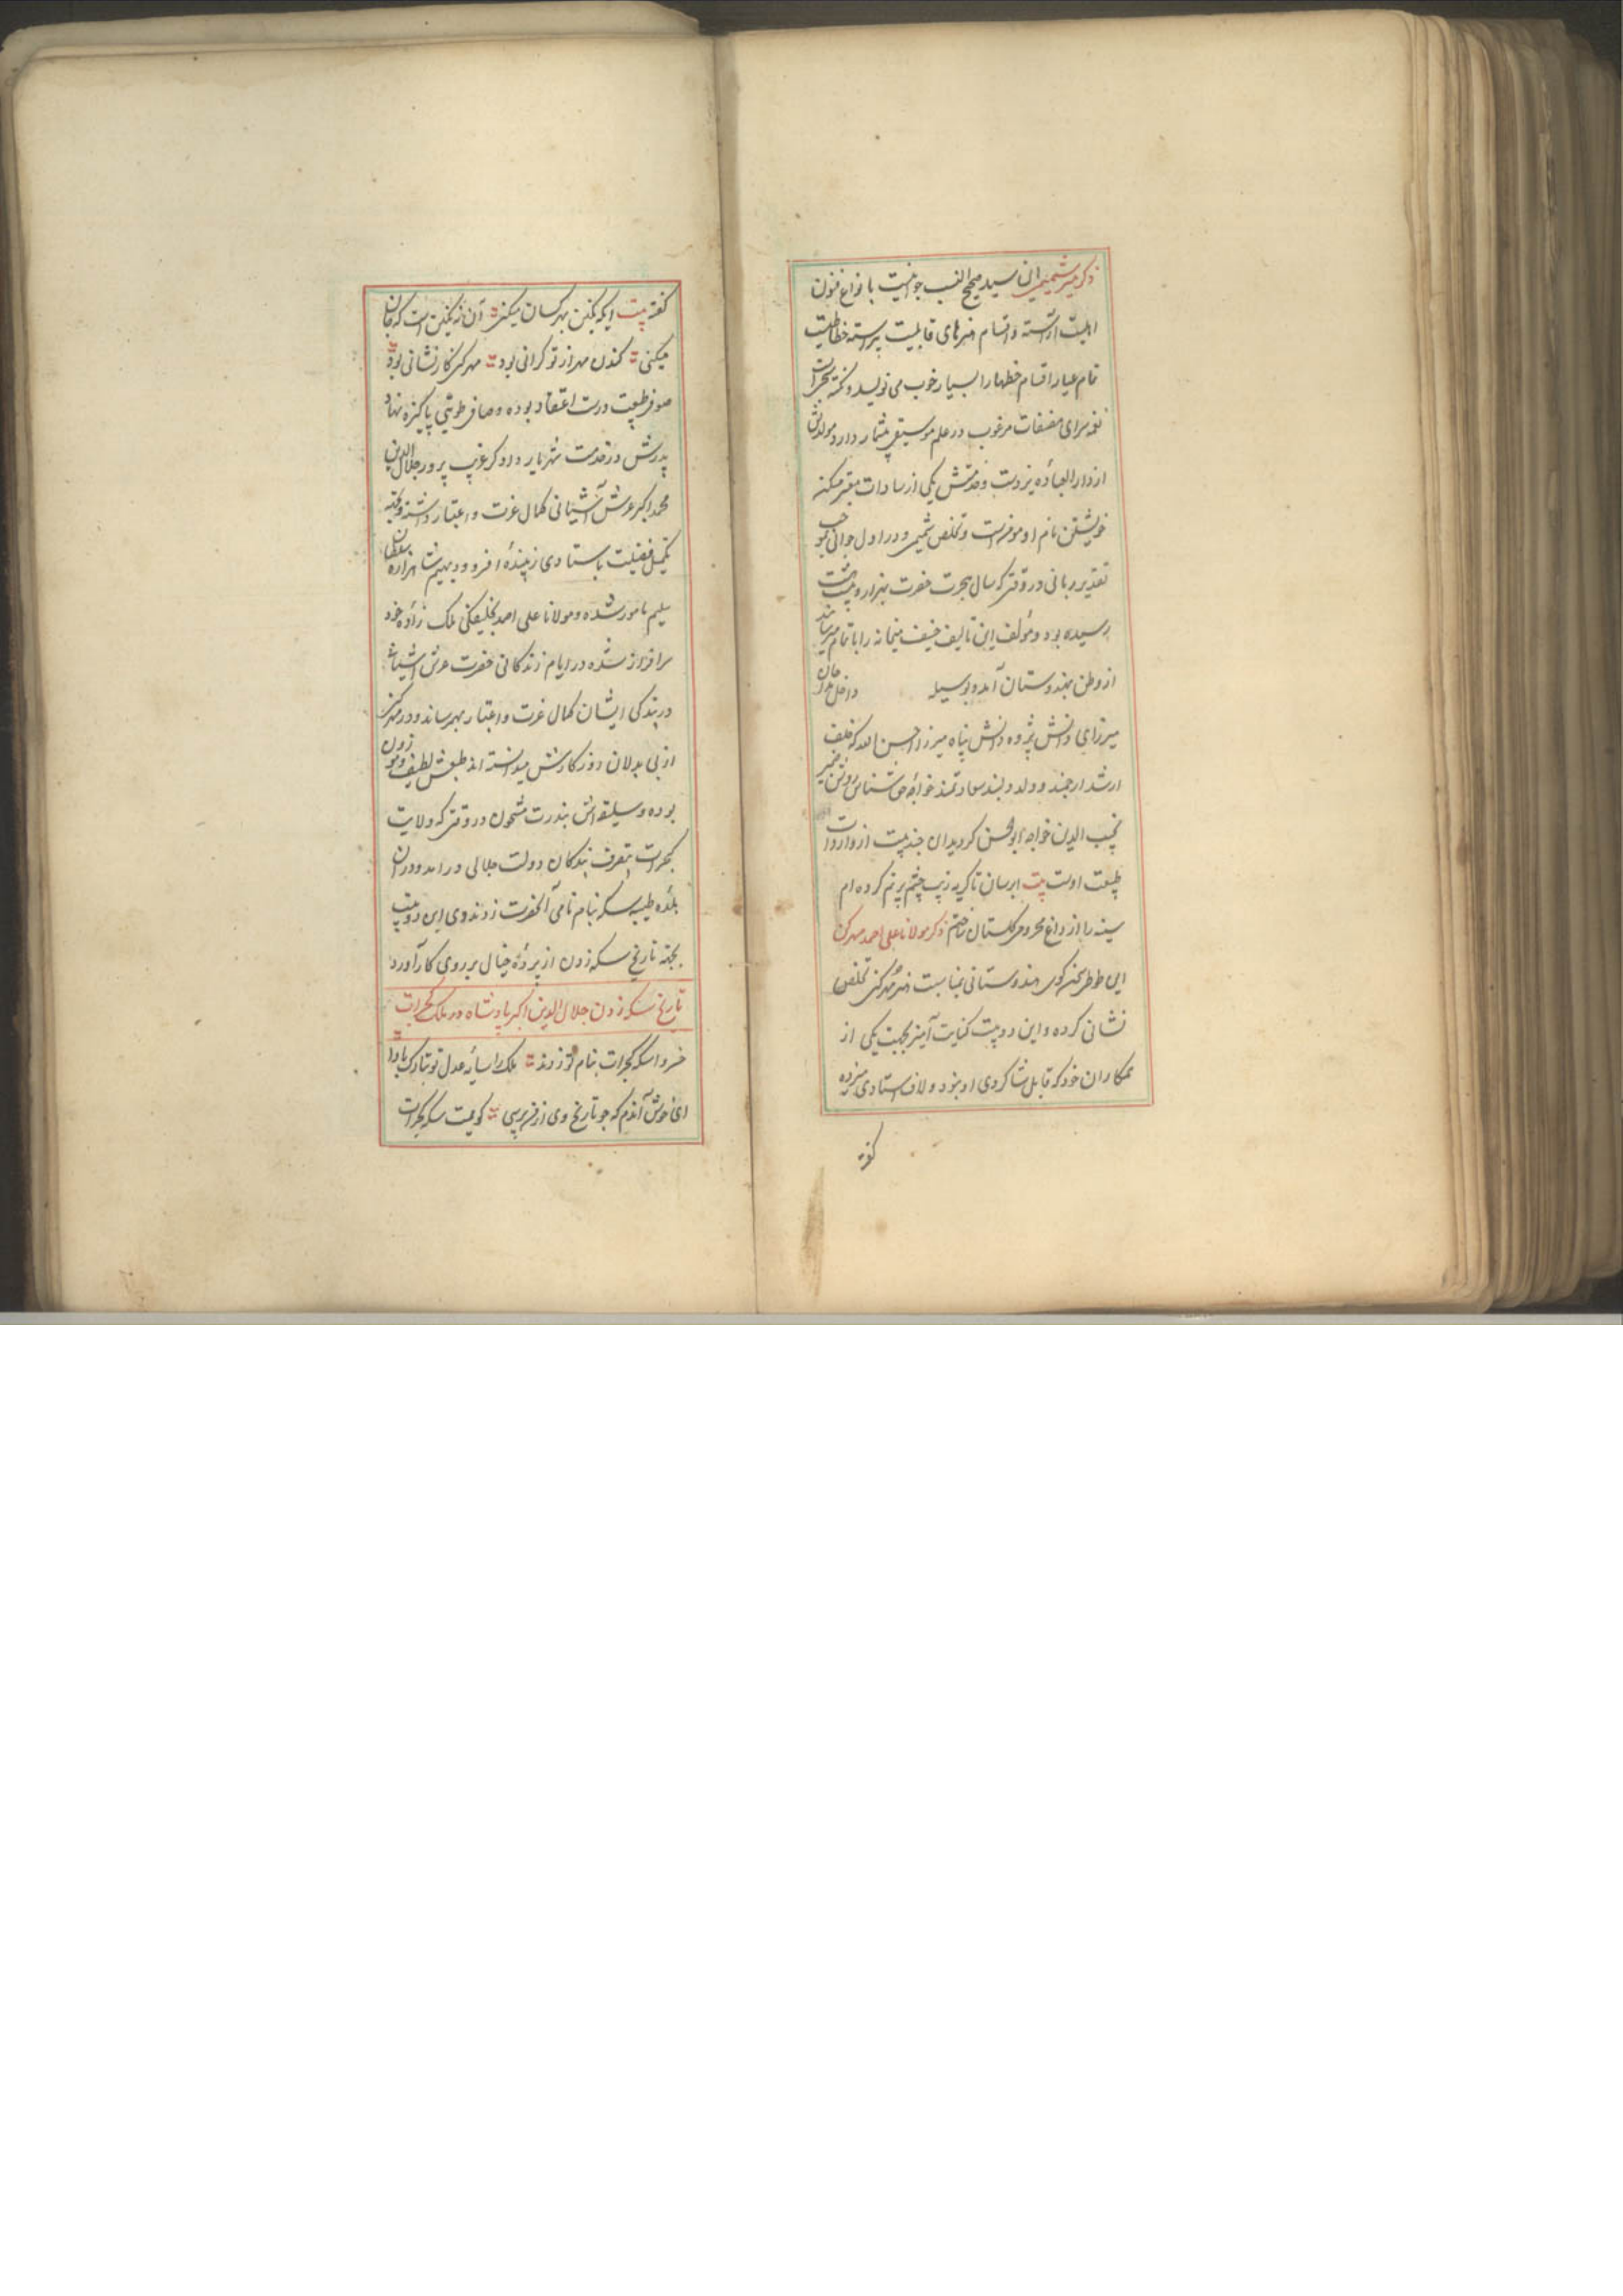 ذکر میر شمیمی این سید صحیح النسب جوانیست بانواع فنون
اهلیت آراسته و اقسام هنرهای قابلیت پیراسته خطاطیست
تمام عیار اقسام خطها را بسیار خوب می نویسد و نکته
نغمه سرای مصنفات مرغوب در علم موسیقی بیشمار دارد مولدش
از دار العباده یزدست و خدمتش یکی از سادات معتبر
خویشتن نام او مومنست و تخلص شمیمی و در اول جوانی
تقدیر ربانی در وقتی که سال هجرت حضرت بهزار و بیست
رسیده بود و مؤلف این تالیف ضعیف میخانه را باتمام میرساند
از وطن بهندوستان آمد و بوسیله داخل
میرزای دانش پژوه دانش پناه میرزا احسن الله که خلف
ارشد ارجمند و ولد دلبند سعادتمند خواجه حق شناس روشن ضمیر
نجیب الدین خواجه ابوالحسن گردید این چند بیت از واردات
طبیعت اوست بیت ابرسان تا گریه زیب چشم پر نم کرده ام
سینه را از داغ محرومی گلستان ساختم ذکر مولانا علی احمد مهرکن
این طوطی سخن گوی هندوستانی بمناسبت هنر مهرکنی تخلص
نشانی کرده و این دو بیت کنایت آمیز بجهت یکی از
همکاران خود که قابل شاگردی او نبود و لاف استادی میزده
گفته
گفته بیت ایکه نگین بهر کسان میکنی آن نه نگین است که جان
میکنی کندن مهر از تو گرانی بود مهرکنی کار نشانی بود
صوفی طبیعت درست اعتقاد بوده و صافی طویتی پاکیزه نهاد
پدرش در خدمت شهریار دادگر غریب پرور جلال الدین
محمد اکبر عرش آشیانی کمال عزت و اعتبار داشته
تکمیل فضیلت باستادی زیبندهٔ افسر و دیهیم شاهزاده سلطان
سلیم مامور شده و مولانا علی احمد بخلیفگی ملک زاده خود
سرافراز شده در ایام زندگانی حضرت عرش آشیانی
در بندگی ایشان کمال عزت و اعتبار بهمرساند و در مهرکنی
از بی بدلان روزگارش میدانسته اند طبعش لطیف و موزون
بوده و سلیقه اش بندرت مشحون در وقتی که ولایت
گجرات بتصرف بندگان دولت جلالی در امد و در ان
بلدهٔ طیبه سکه بنام نامی آنحضرت زدند وی این دو بیت
بجهة تاریخ سکه زدن از پردهٔ خیال بر روی کار آورد
تاریخ سکه زدن جلال الدین اکبر پادشاه در ملک گجرات
خسروا سکه گجرات بنام تو زدند ملک را سایهٔ عدل تو تبارک بادا
ای خوش آندم که چو تاریخ وی از من پرسی گویمت سکه گجرات